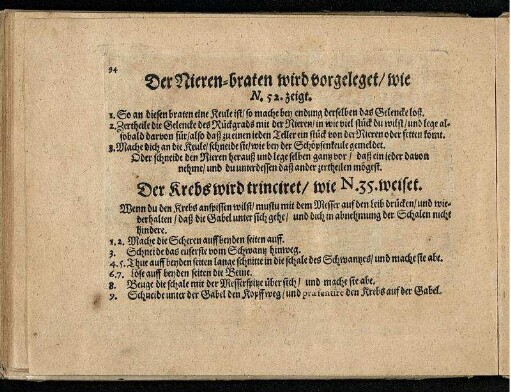 94
Der Nieren-braten wird vorgeleget/ wie
N. 52. zeigt.
1. So an diesen braten eine Keule ist/ so mache bey endung derselben das Gelencke loß.
2. Zertheile die Gelencke des Rückgrads mit der Nieren/ in wie viel stück du wilst/ und lege al-
sobald darvon für/ also daß zu einen ieden Teller ein stück von der Nieren oder fetten komt.
3. Mache dich an die Keule/ schneide sie/ wie bey der Schöpsenkeule gemeldet.
Oder schneide den Nieren herauß und lege selben gantz vor/ daß ein ieder davon
nehme/ und du unterdessen daß ander zertheilen mögest.
Der Krebs wird trinciret/ wie N. 35. weiset.
Wenn du den Krebs anspissen wilst/ mustu mit dem Messer auf den leib drücken/ und wie-
derhalten/ daß die Gabel unter sich gehe/ und dich in abnehmung der Schalen nicht
hindere.
1. 2. Mache die Scheren auff beyden seiten auff.
3. Schneide das euserste vom Schwantz hinweg.
4. 5. Thue auff beyden seiten lange schnitte in die schale des Schwantzes/ und mache sie abe.
6. 7. Löse auff beyden seiten die Beine.
8. Beuge die schale mit der Messerspitze über sich/ und mache sie abe.
9. Schneide unter der Gabel den Kopff weg/ und præsentire den Krebs auf der Gabel.